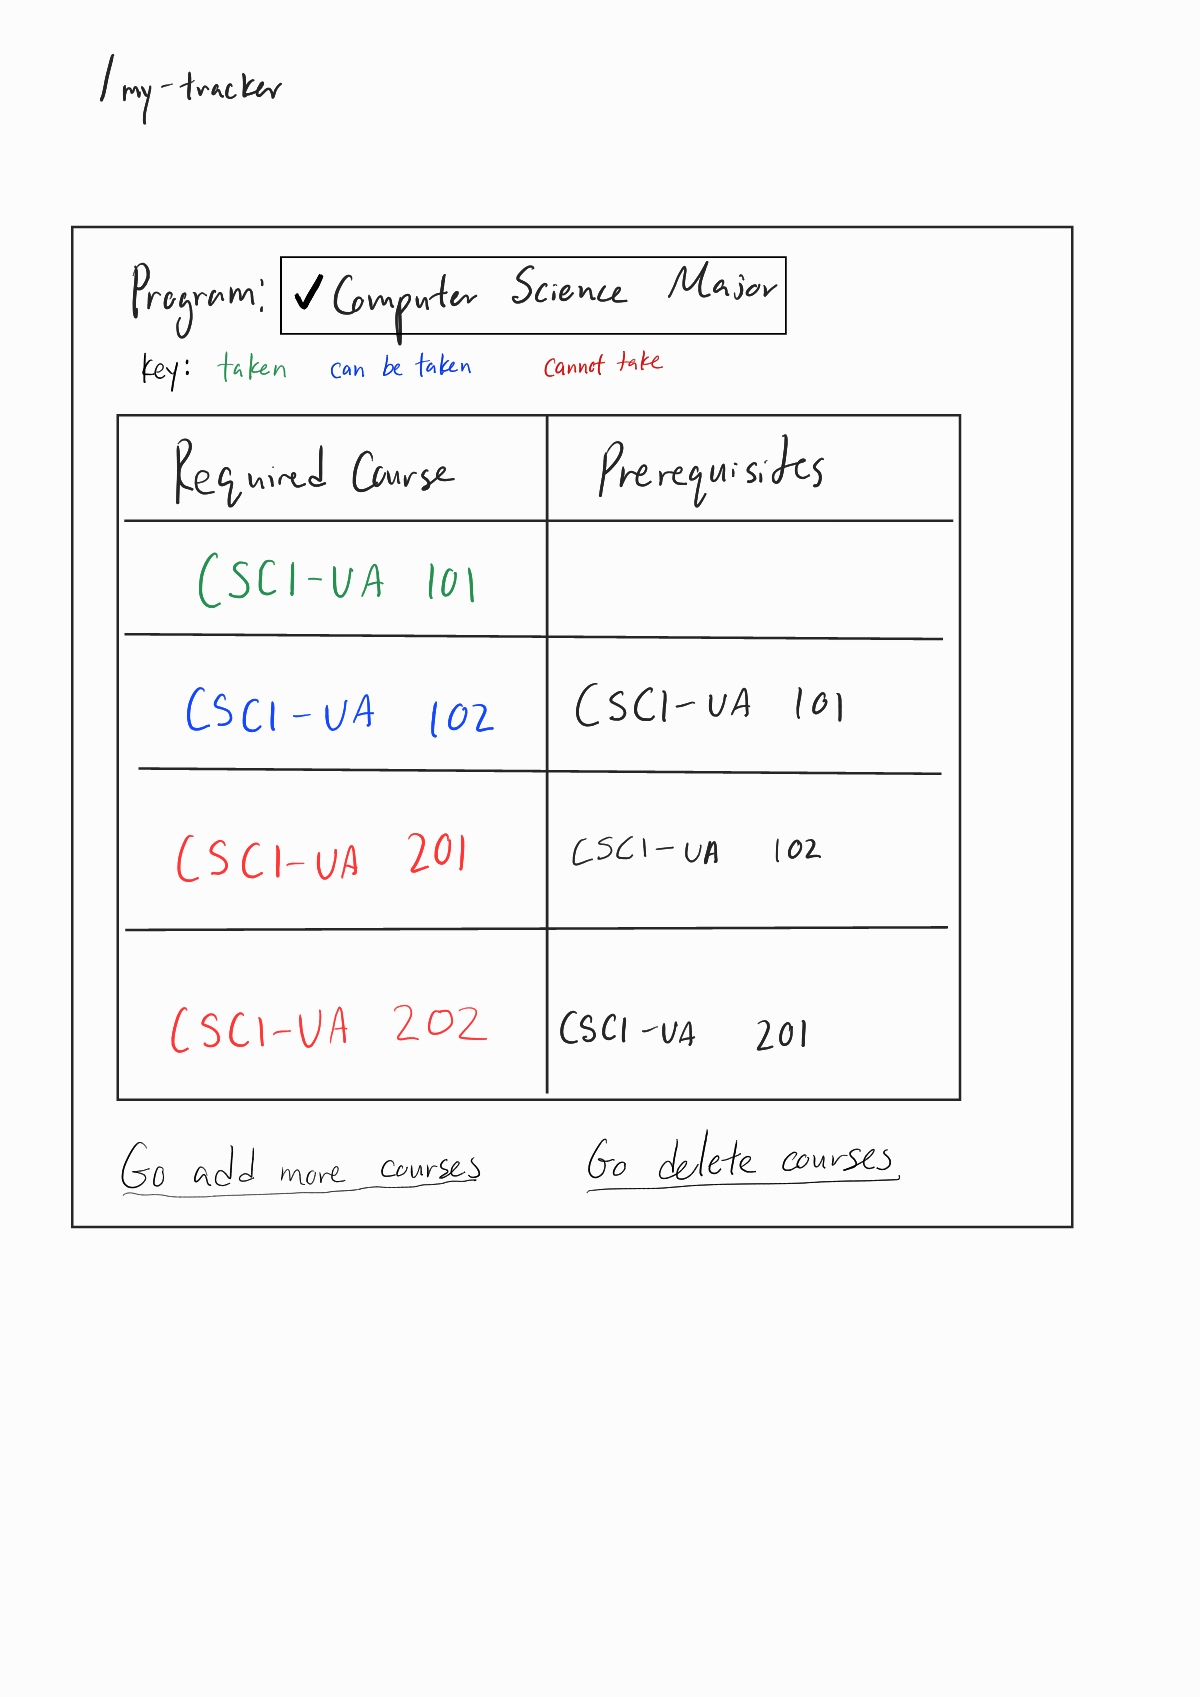 /my-tracker
Program: ✓ Computer Science Major
key: taken can be taken cannot take
Required Course Prerequisites
CSCI-UA 101
CSCI-UA 102 CSCI-UA 101
CSCI-UA 201 CSCI-UA 102
CSCI-UA 202 CSCI-UA 201
Go add more courses Go delete courses